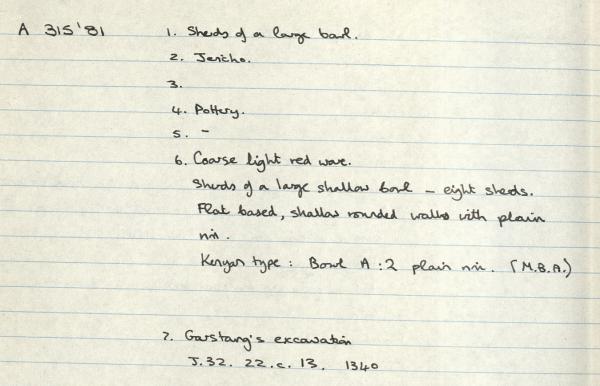 A 315'81 1. Sherds of a large bowl.
2. Jericho.
3.
4. Pottery.
5. -
6. Coarse light red ware.
Sherds of a large shallow bowl - eight sherds.
Flat based, shallow rounded walls with plain
rim.
Kenyon type : Bowl A : 2 plain rim. (M.B.A.)
7. Garstang's excavation
J.32. 22.c. 13. 1340